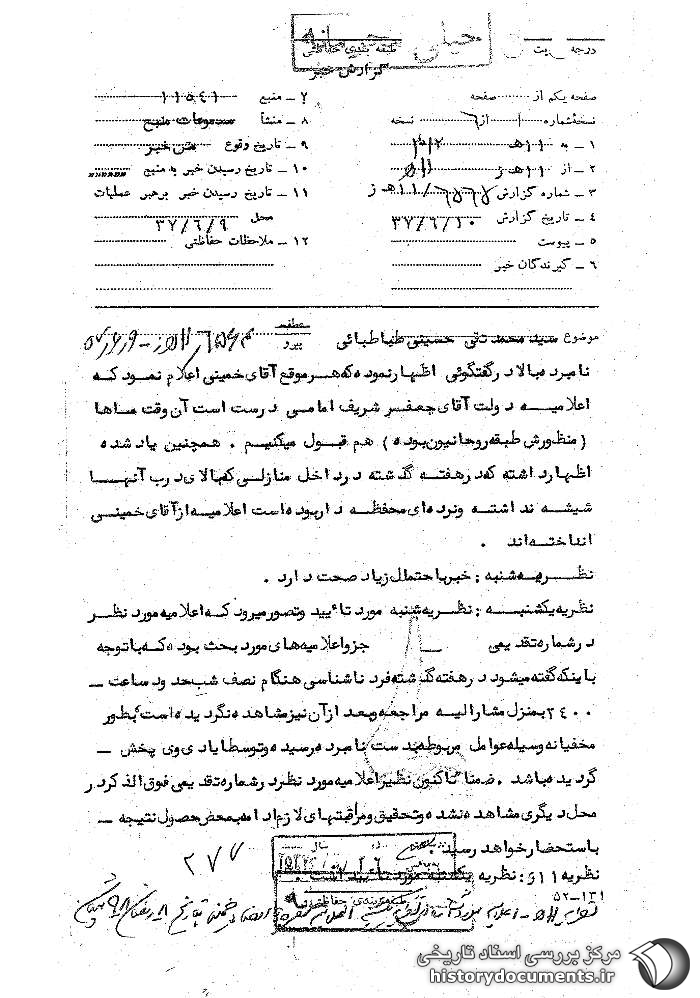 خیلی محرمانه
طبقه بندی حفاظتی
گزارش خبر
درجه
صفحه یکم از صفحه
نسخه شماره ۱ از ۶ نسخه
۱ ـ به ۱۱ه‍ ۳۱۲
۲ ـ از ۱۱ه‍ ز
۳ ـ شماره گزارش /۱۱ه‍ ز
۴ ـ تاریخ گزارش ۳۷/۶/۱۰
۵ ـ پیوست
۶ ـ گیرندگان خبر
۷ ـ منبع ۱۱۵۴۱
۸ ـ منشأ مسموعات منبع
۹ ـ تاریخ وقوع متن خبر
۱۰ ـ تاریخ رسیدن خبر به منبع
۱۱ ـ تاریخ رسیدن خبر برهبر عملیات
محل ۳۷/۶/۹
۱۲ ـ ملاحظات حفاظتی
موضوع سید محمد تقی حسینی طباطبائی
عطف
پیرو
نامبرده بالا در گفتگوئی اظهار نموده که هر موقع آقای خمینی اعلام نمود که
اعلامیه دولت آقای جعفر شریف امامی درست است آن وقت ماها
(منظورش طبقه روحانیون بوده) هم قبول میکنیم . همچنین یاد شده
اظهار داشته که در هفته گذشته در داخل منازلی که بالای درب آنها
شیشه نداشته و نرده ای محفظه دار بوده است اعلامیه از آقای خمینی
انداخته اند .
نظریه شنبه : خبر با احتمال زیاد صحت دارد .
نظریه یکشنبه : نظریه شنبه مورد تائید و تصور میرود که اعلامیه مورد نظر
در شماره تقدیمی ــ جزو اعلامیه های مورد بحث بوده که با توجه
باینکه گفته میشود در هفته گذشته فرد ناشناسی هنگام نصف شب حدود ساعت ــ
۲۴۰۰ بمنزل مشارالیه مراجعه و بعد از آن نیز مشاهده نگردیده است بطور
مخفیانه وسیله عوامل مربوطه بدست نامبرده رسیده و توسط ایادی وی پخش ــ
گردیده باشد . ضمنا تاکنون نظیر اعلامیه مورد نظر در شماره تقدیمی فوق الذکر در
محل دیگری مشاهده نشده و تحقیق و مراقبتهای لازم ادامه بمحض حصول نتیجه ــ
باستحضار خواهد رسید .
نظریه ۱۱ و : نظریه یکشنبه مورد تائید است .
۲۷۷
۵۲-۱۳۱
مرکز بررسی اسناد تاریخی
historydocuments.ir